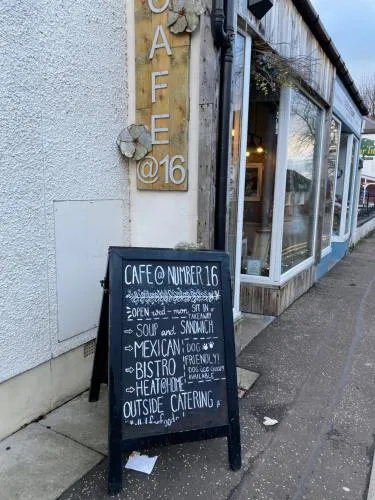 CAFE
@16
CAFE @ NUMBER 16
OPEN wed - mon, SIT IN
TAKEAWAY
⇨ SOUP and SANDWICH
⇨ MEXICAN
⇨ BISTRO
⇨ HEAT@HOME
DOG
FRIENDLY!
DOG
AVAILABLE
OUTSIDE CATERING